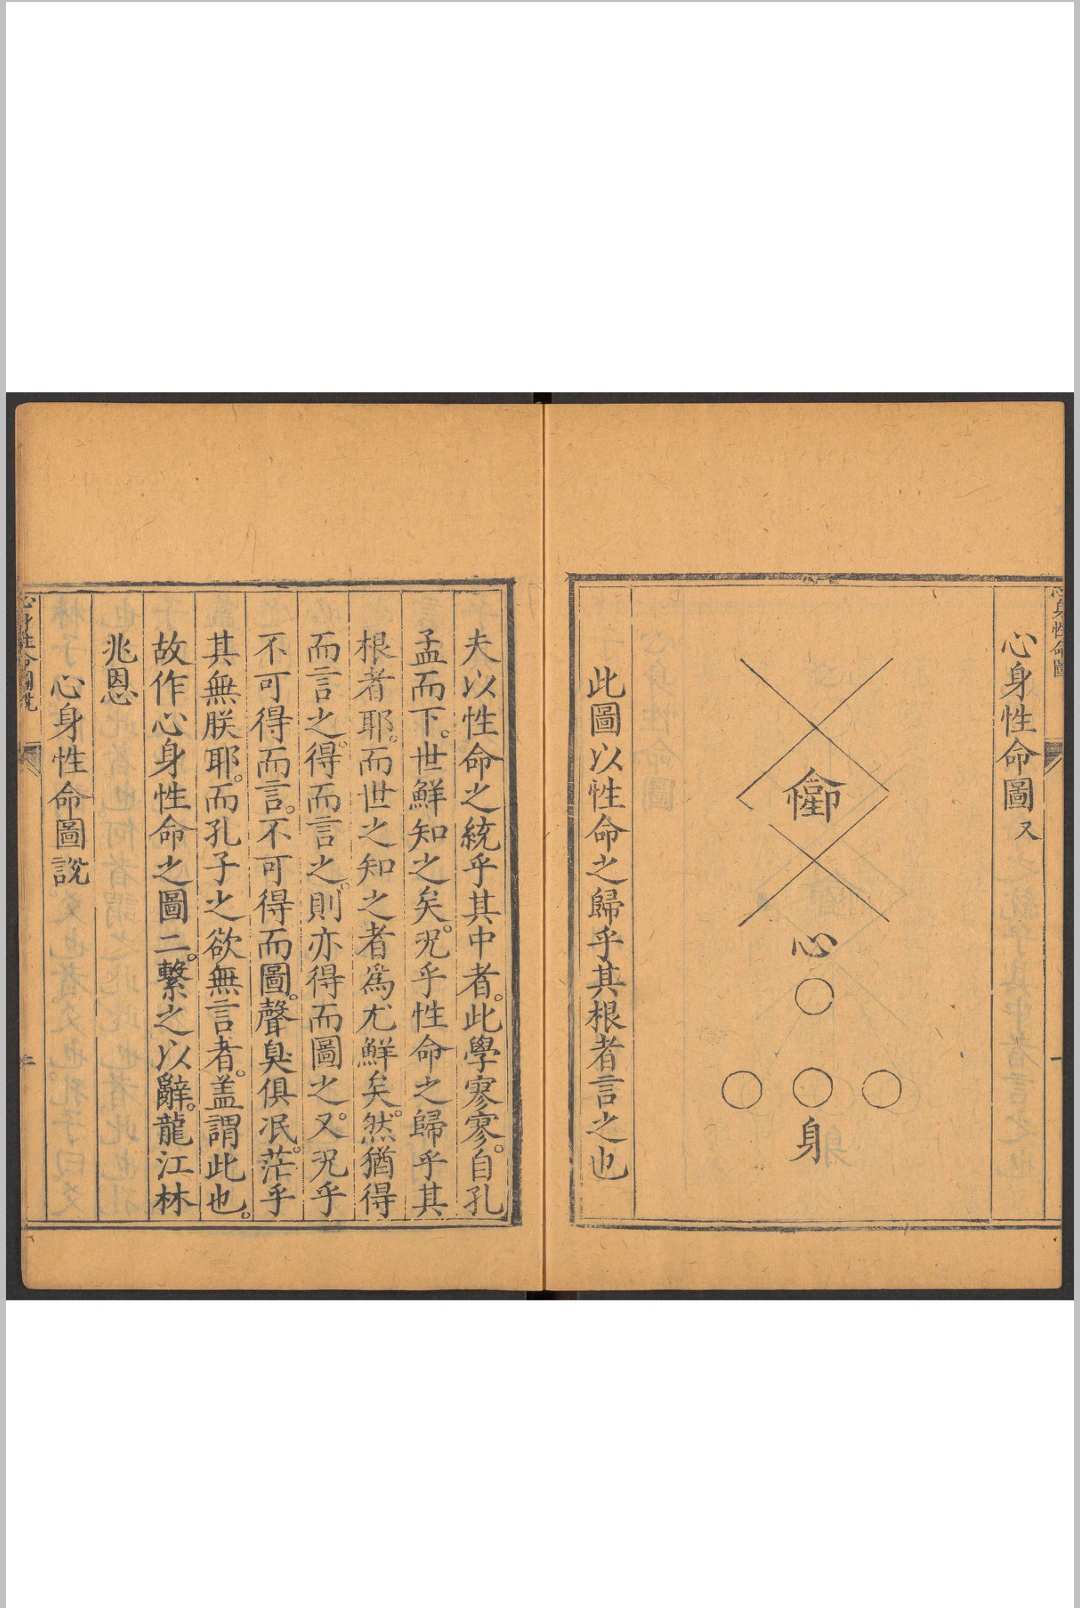 心身性命圖
心身性命圖又
心
身
此圖以性命之歸乎其根者言之也
夫以性命之統乎其中者。此學寥寥。自孔
孟而下。世鮮知之矣。況乎性命之歸乎其
根者耶。而世之知之者爲尤鮮矣。然猶得
而言之。得而言之。則亦得而圖之。又況乎
不可得而言。不可得而圖。聲臭俱泯。茫乎
其無朕耶。而孔子之欲無言者。盖謂此也。
故作心身性命之圖二。繫之以辭。龍江林
兆恩
心身性命圖說
心身性命圖說